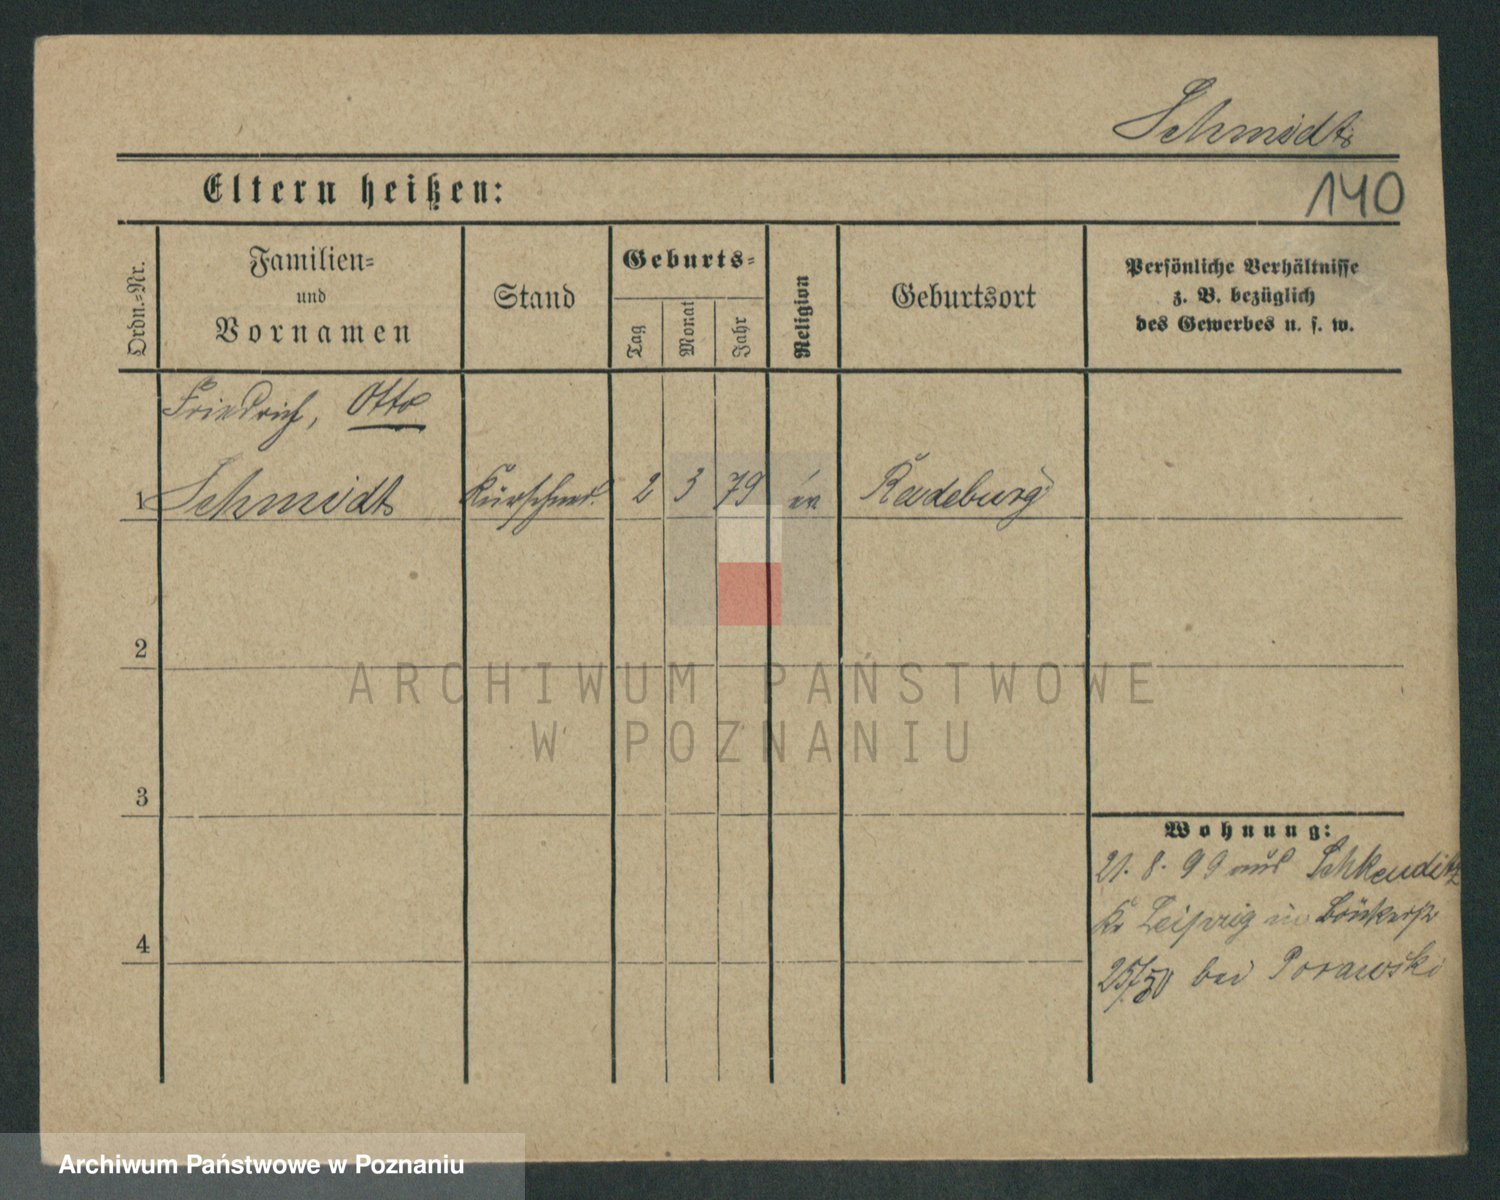 Schmidt
Eltern heißen:
140
Ordn.-Nr.
Familien-
und
Vornamen
Stand
Geburts-
Tag
Monat
Jahr
Religion
Geburtsort
Persönliche Verhältnisse
z. B. bezüglich
des Gewerbes u. s. w.
Friedrich, Otto
1 Schmidt Kürschner. 2 3 79 ev Radeburg
2
ARCHIWUM PAŃSTWOWE
W POZNANIU
3
Wohnung:
21. 8. 99 aus Schkeuditz
Kr Leipzig in
4
25/30 bei Porawski
Archiwum Państwowe w Poznaniu